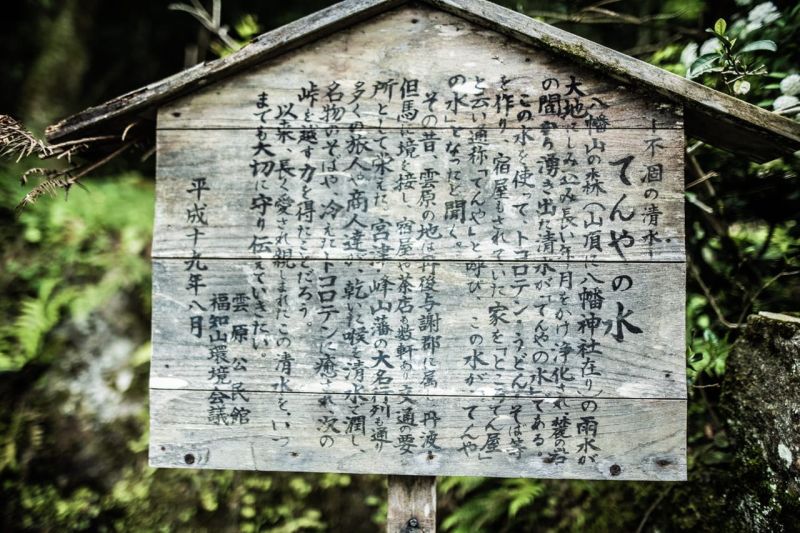 －不涸の清水－
てんやの水
八幡山の森（山頂に八幡神社在り）の雨水が
大地にしみ込み長い年月をかけ浄化され、麓の岩
の間から湧き出た清水が「てんやの水」である。
この水を使って、トコロテン・うどん・そば等
を作り、宿屋もされていた家を「ところてん屋」
と云い通称「てんや」と呼び、この水が「てんや
の水」となったと聞く。
その昔、雲原の地は丹後与謝郡に属し、丹波
但馬に境を接し、宿屋や茶店も数軒あり交通の要
所として栄えた。宮津・峰山藩の大名行列も通り
多くの旅人や商人達が、乾いた喉を清水で潤し、
名物のそばや、冷えたトコロテンに癒され、次の
峠を越す力を得たことだろう。
以来、長く愛され親しまれたこの清水を、いつ
までも大切に守り伝えていきたい。
平成十九年八月
雲原公民館
福知山環境会議